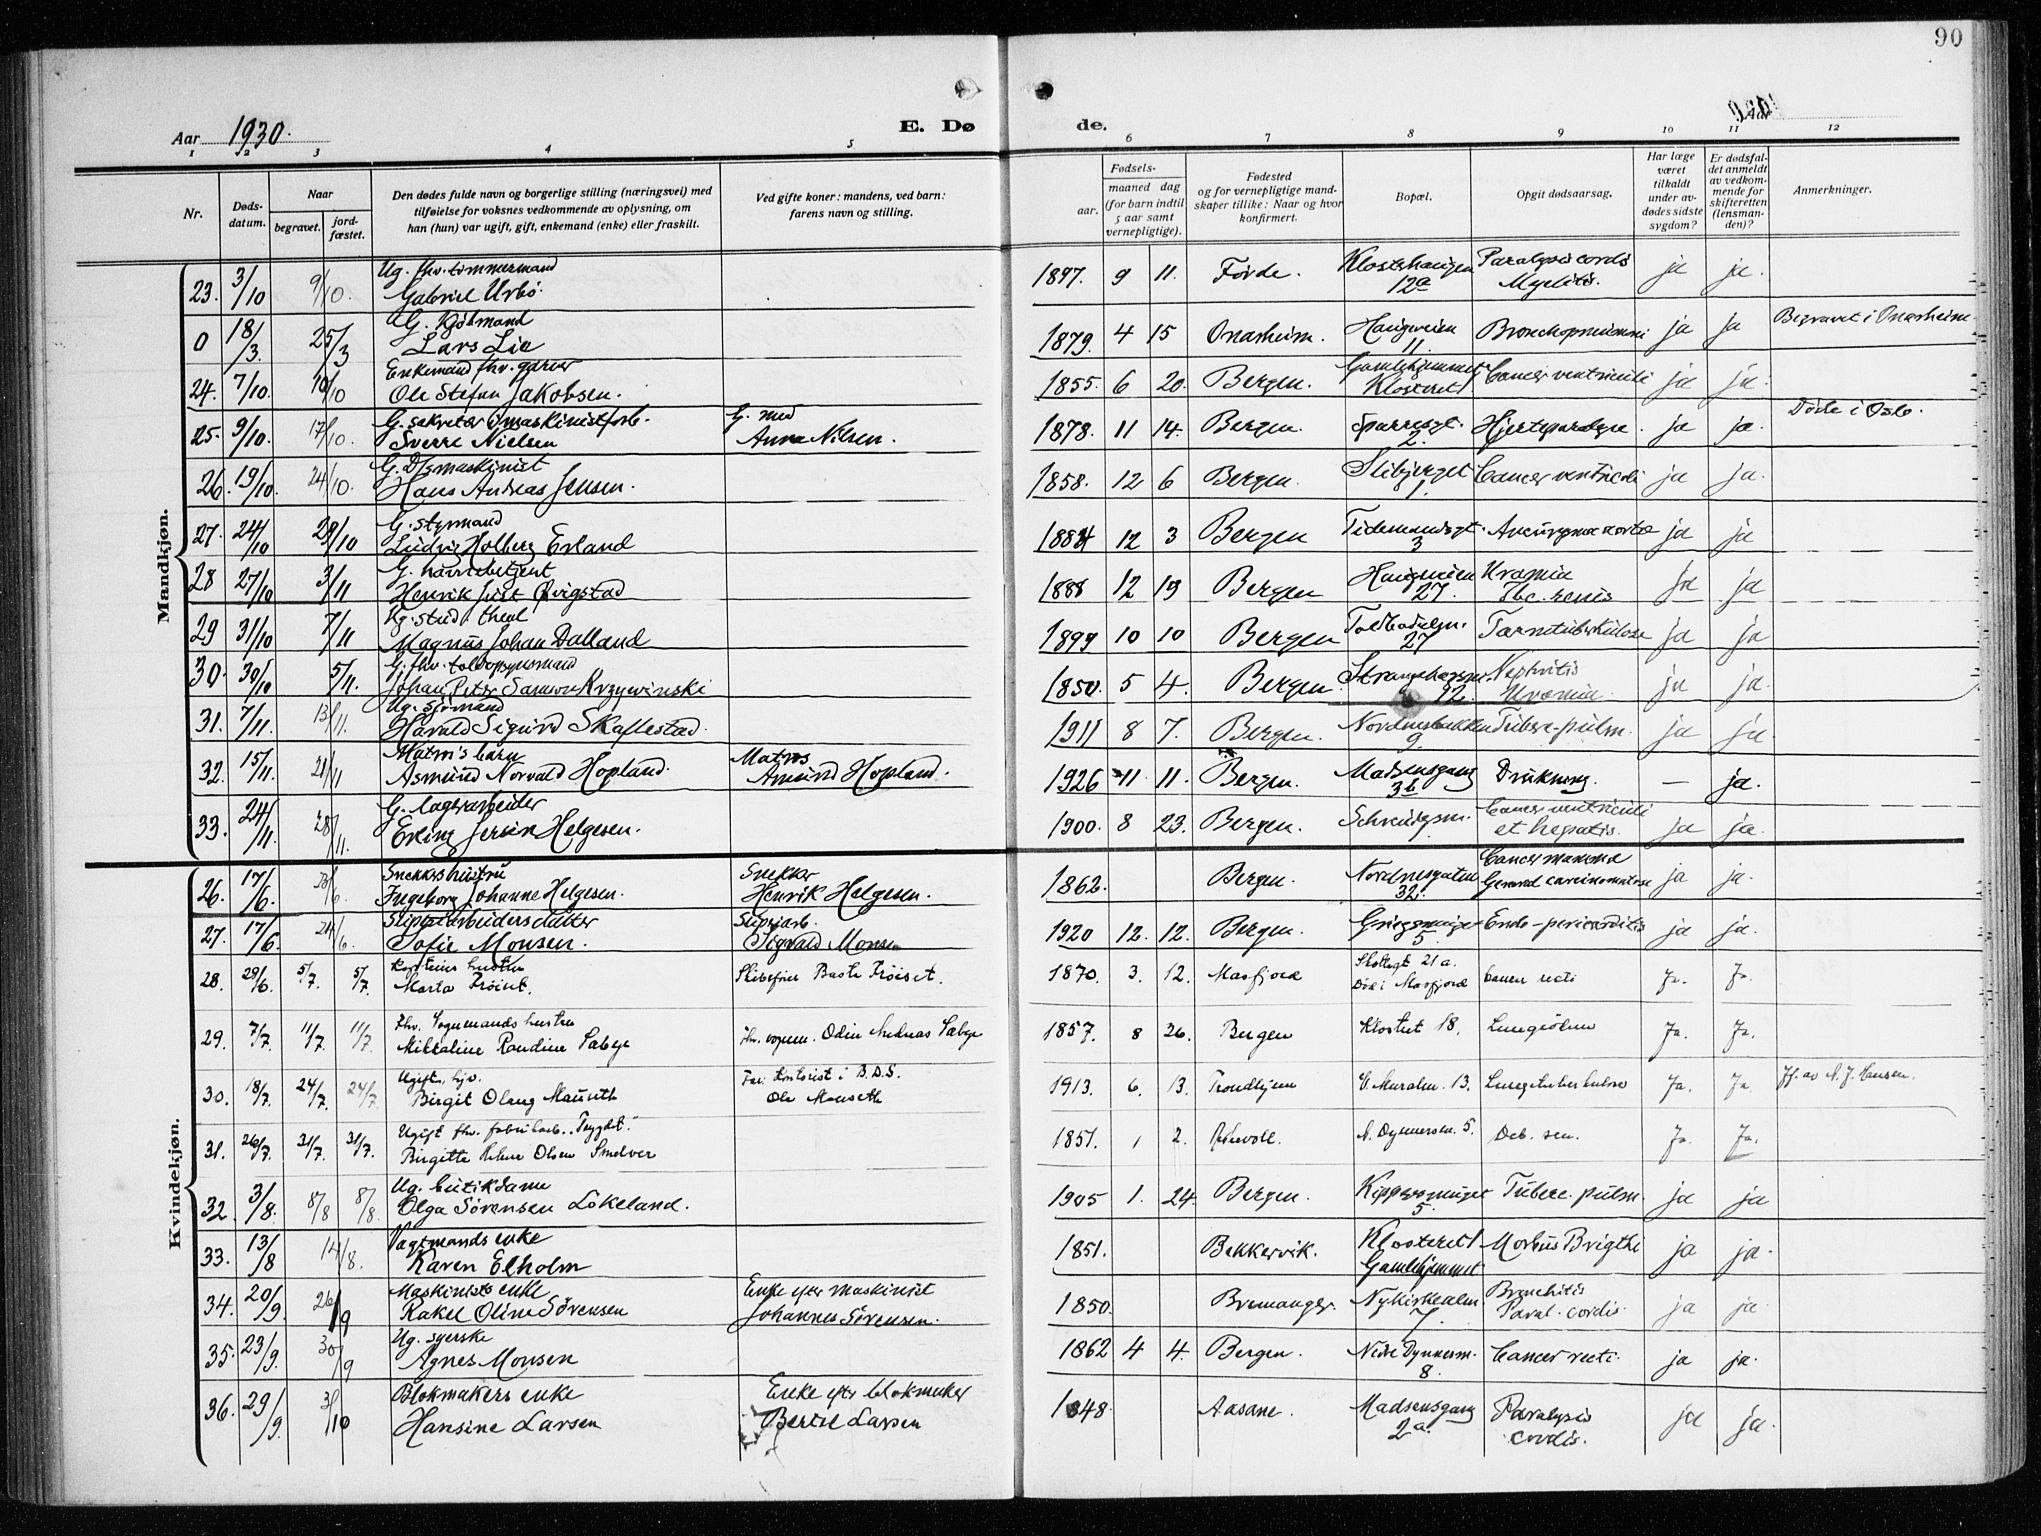 90
Aar 1930.
E. Dø de.
1 2 3 4 5 6 7 8 9 10 11 12
Nr.
Døds-
datum.
Naar
begravet.
jord-
fæstet.
Den dødes fulde navn og borgerlige stilling (næringsvei) med
tilføielse for voksnes vedkommende av oplysning, om
han (hun) var ugift, gift, enkemand (enke) eller fraskilt.
Ved gifte koner: mandens, ved barn:
farens navn og stilling.
Fødsels-
aar.
maaned dag
(for barn indtil
5 aar samt
vernepligtige).
Fødested
og for vernepligtige mand-
skaper tillike: Naar og hvor
konfirmert.
Bopæl.
Opgit dødsaarsag.
Har læge
været
tilkaldt
under av-
dødes sidste
sygdom?
Er dødsfal-
det anmeldt
av vedkom-
mende for
skifteretten
(lensman-
den)?
Anmerkninger.
Mandkjøn.
Ug. fhv. tømmermand
23. 3/10 9/10. Gabriel Urbø. 1897. 9 11. Førde. Klosterhaugen 12a Paralysis cordis Myelitis. ja ja.
G. Kjøbmand
0 18/3 25/3 Lars Lie 1879. 4 15 Onarheim. Haugeveien 11. Bronchopneumoni ja ja Begravet i Onarheim.
Enkemand fhv. garver
24. 7/10. 10/10 Ole Stefan Jakobsen. 1855. 6 20. Bergen. Gamlehjemmet Klosteret 1 Cancer ventriculi ja ja.
G. sekretær i maskinistforb. G. med
25. 9/10. 17/10. Sverre Nielsen Anna Nilsen. 1878. 11 14. Bergen. 2. Hjerteparalyse ja ja. Døde i Oslo.
G. D/smaskinist
26. 19/10. 24/10. Hans Andreas Jensen. 1858. 12 6 Bergen. 1. Cancer ventriculi ja ja.
G. styrmand
27. 24/10 29/10 Ludvig Holberg Erland 1884 12 3 Bergen Tidemandsgt. 3 Aneurysma aortae ja ja
G. havnebetjent
28 27/10 3/11 Henrik Just Qvigstad 1888 12 19 Bergen Haugeveien 27. Uræmia Tbc. renis ja ja
Ug. stud. theol
29 31/10 7/11 Magnus Johan Dalland 1899 10 10 Bergen Toldbodalm. 27 Tarmtuberkulose ja ja
G. fhv. toldopsynsmand
30. 30/10 5/11. Johan Peter Samson Krzywinski 1850. 5 4. Bergen. Strangehagen 12. Nephritis Uræmia. ja ja.
Ug. sjømand
31. 7/11. 13/11. Harald Sigurd Skaflestad. 1911 8 7. Bergen. Nordnesbakken 9. Tuberc. pulm. ja ja
Matros barn Matros
32. 15/11. 21/11 Asmund Norvald Hopland. Amund Hopland. 1926 11 11. Bergen. Madsensgang 3b Drukning. — ja.
G. lagerarbeider
33. 24/11. 28/11. Erling Jersin Helgesen. 1900. 8 23. Bergen. Cancer ventriculi et hepatis. ja ja.
Kvindekjøn.
Snekkers hustru Snekker
26. 17/6. 23/6. Ingeborg Johanne Helgesen. Henrik Helgesen. 1862. Bergen. Nordnesgaten 32. Cancer mammæ General carcinomatose ja ja.
Sliperiarbeiders datter Sliperiarb.
27. 17/6. 24/6. Sofie Monsen. Sigvald Monsen 1920 12. 12. Bergen. 5. Endo-pericarditis ja ja.
hustru
28. 29/6 5/7. 5/7 Marta Trøiset. Baste Trøiset. 1870. 3. 12. Masfjord 21a. Død i Masfjord Cancer recti Ja. Ja.
Fhv. Vognmands hustru
29. 7/7. 11/7 11/7 Mikkaline Randine Sæbye Fhv. vognm. Odin Andreas Sæbye 1857. 8 26. Bergen Klostret 18. Lungeødem Ja. Ja.
Ugift, hjv. Far: Kontorist i B.D.S.
30. 18/7. 24/7. 24/7. Birgit Olaug Mauseth Ole Mauseth 1913. 6. 13. Trondhjem C. Muralm. 13. Lungetuberkulose Ja. Ja Jf. av N. J. Hansen.
Ugift fhv. fabrikarb. "Trygdet".
31. 26/7. 31/7. 31/7. Birgitte Helene Olsen 1851. 1 2. N. Dynnersm. 5. Deb. sen. Ja. Ja.
Ug. butikdame
32. 3/8. 8/8 8/8. Olga Sørensen Løkeland. 1905 1. 24. Bergen. 5. Tuberc. pulm ja ja
Vagtmands enke
33. 13/8 14/8. Karen Elholm 1851. Bekkervik. Klosteret 1 Gamlehjemmet Morbus Brigthi ja ja.
Maskinists enke Enke efter maskinist
34. 20/9. 26/9 Rakel Oline Sørensen Johannes Sørensen. 1850. Bremanger. Nykirkealm 7. Bronchitis Paral. cordis. ja ja.
Ug. syerske
35. 23/9. 30/9 Agnes Monsen 1862 4 4. Bergen. Nedre Dynnersm. 8. Cancer recti. ja ja.
Blokmakers enke Enke efter blokmaker
36. 29/9. 3/10 Hansine Larsen Bertel Larsen 1848. Aasane. Madsensgang 2a. Paralysis cordis. ja ja.